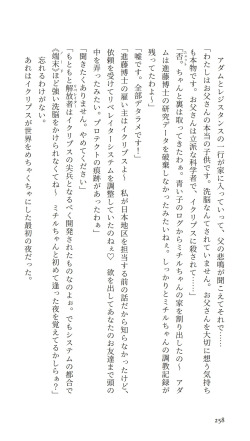 アダムとレジスタンスの一行が家に入っていって、父の悲鳴が聞こえてそれで……
「わたしはお父さんの本当の子供です。洗脳なんてされていません。お父さんを大切に想う気持ち
も本物です。お父さんは立派な科学者で、イクリプスに殺されて……」
「否、ちゃんと裏は取ってきたわぁ。青い子のログからミチルちゃんの家を割り出したの〜　アダ
ムは進藤博士の研究データを破棄しなかったみたいねぇ。しっかりとミチルちゃんの調教記録が
残ってたわよ〜」
「嘘です。全部デタラメです！」
「進藤博士の雇い主はイクリプスよー　私が日本地区を担当する前の話だから知らなかったけど、
依頼を受けてリベレイターシステムを調整していたのねぇ♡　欲を出してあなたのお友達まで頭の
中を弄ったみたい。プロテクトの痕跡があったわぁ」
「聞きたくありません。やめてください」
「もともと解放者はイクリプスの尖兵となるべく開発されたものなのよぉ。でもシステムの都合で
端末にはほど強い洗脳をかけられなくてねー　ミチルちゃんと初めて逢った夜を覚えてるかしらぁ？」
忘れるわけがない。
あれはイクリプスが世界をめちゃくちゃにした最初の夜だった。
258